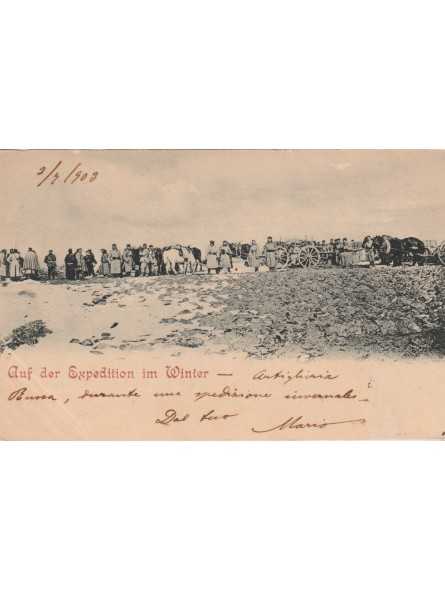 2/9/903
Auf der Expedition im Winter — Artiglieria
Bussa, durante una spedizione invernale.
Dal tuo Mario